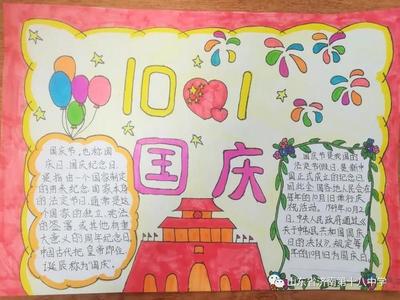 10 1
国庆
国庆节,也称国
庆日、国庆纪念日,
是指由一个国家制
定的用来纪念国家本身
的法定节日。通常是这
个国家的独立、宪法
的签署 或其他有重
大意义的周年纪念日。
中国古代把皇帝即位
、诞辰称为"国庆"。
国庆节是我国的
法定节假日,是新中
国正式成立的纪念日
因此全国各地人民会在
每年的10月1日举行庆
祝活动。1949年10月2日,
中央人民政府通过《
关于中华人民共和国国庆
日的决议》,规定每
年的10月1日为国庆日.
山东省济南第十八中学